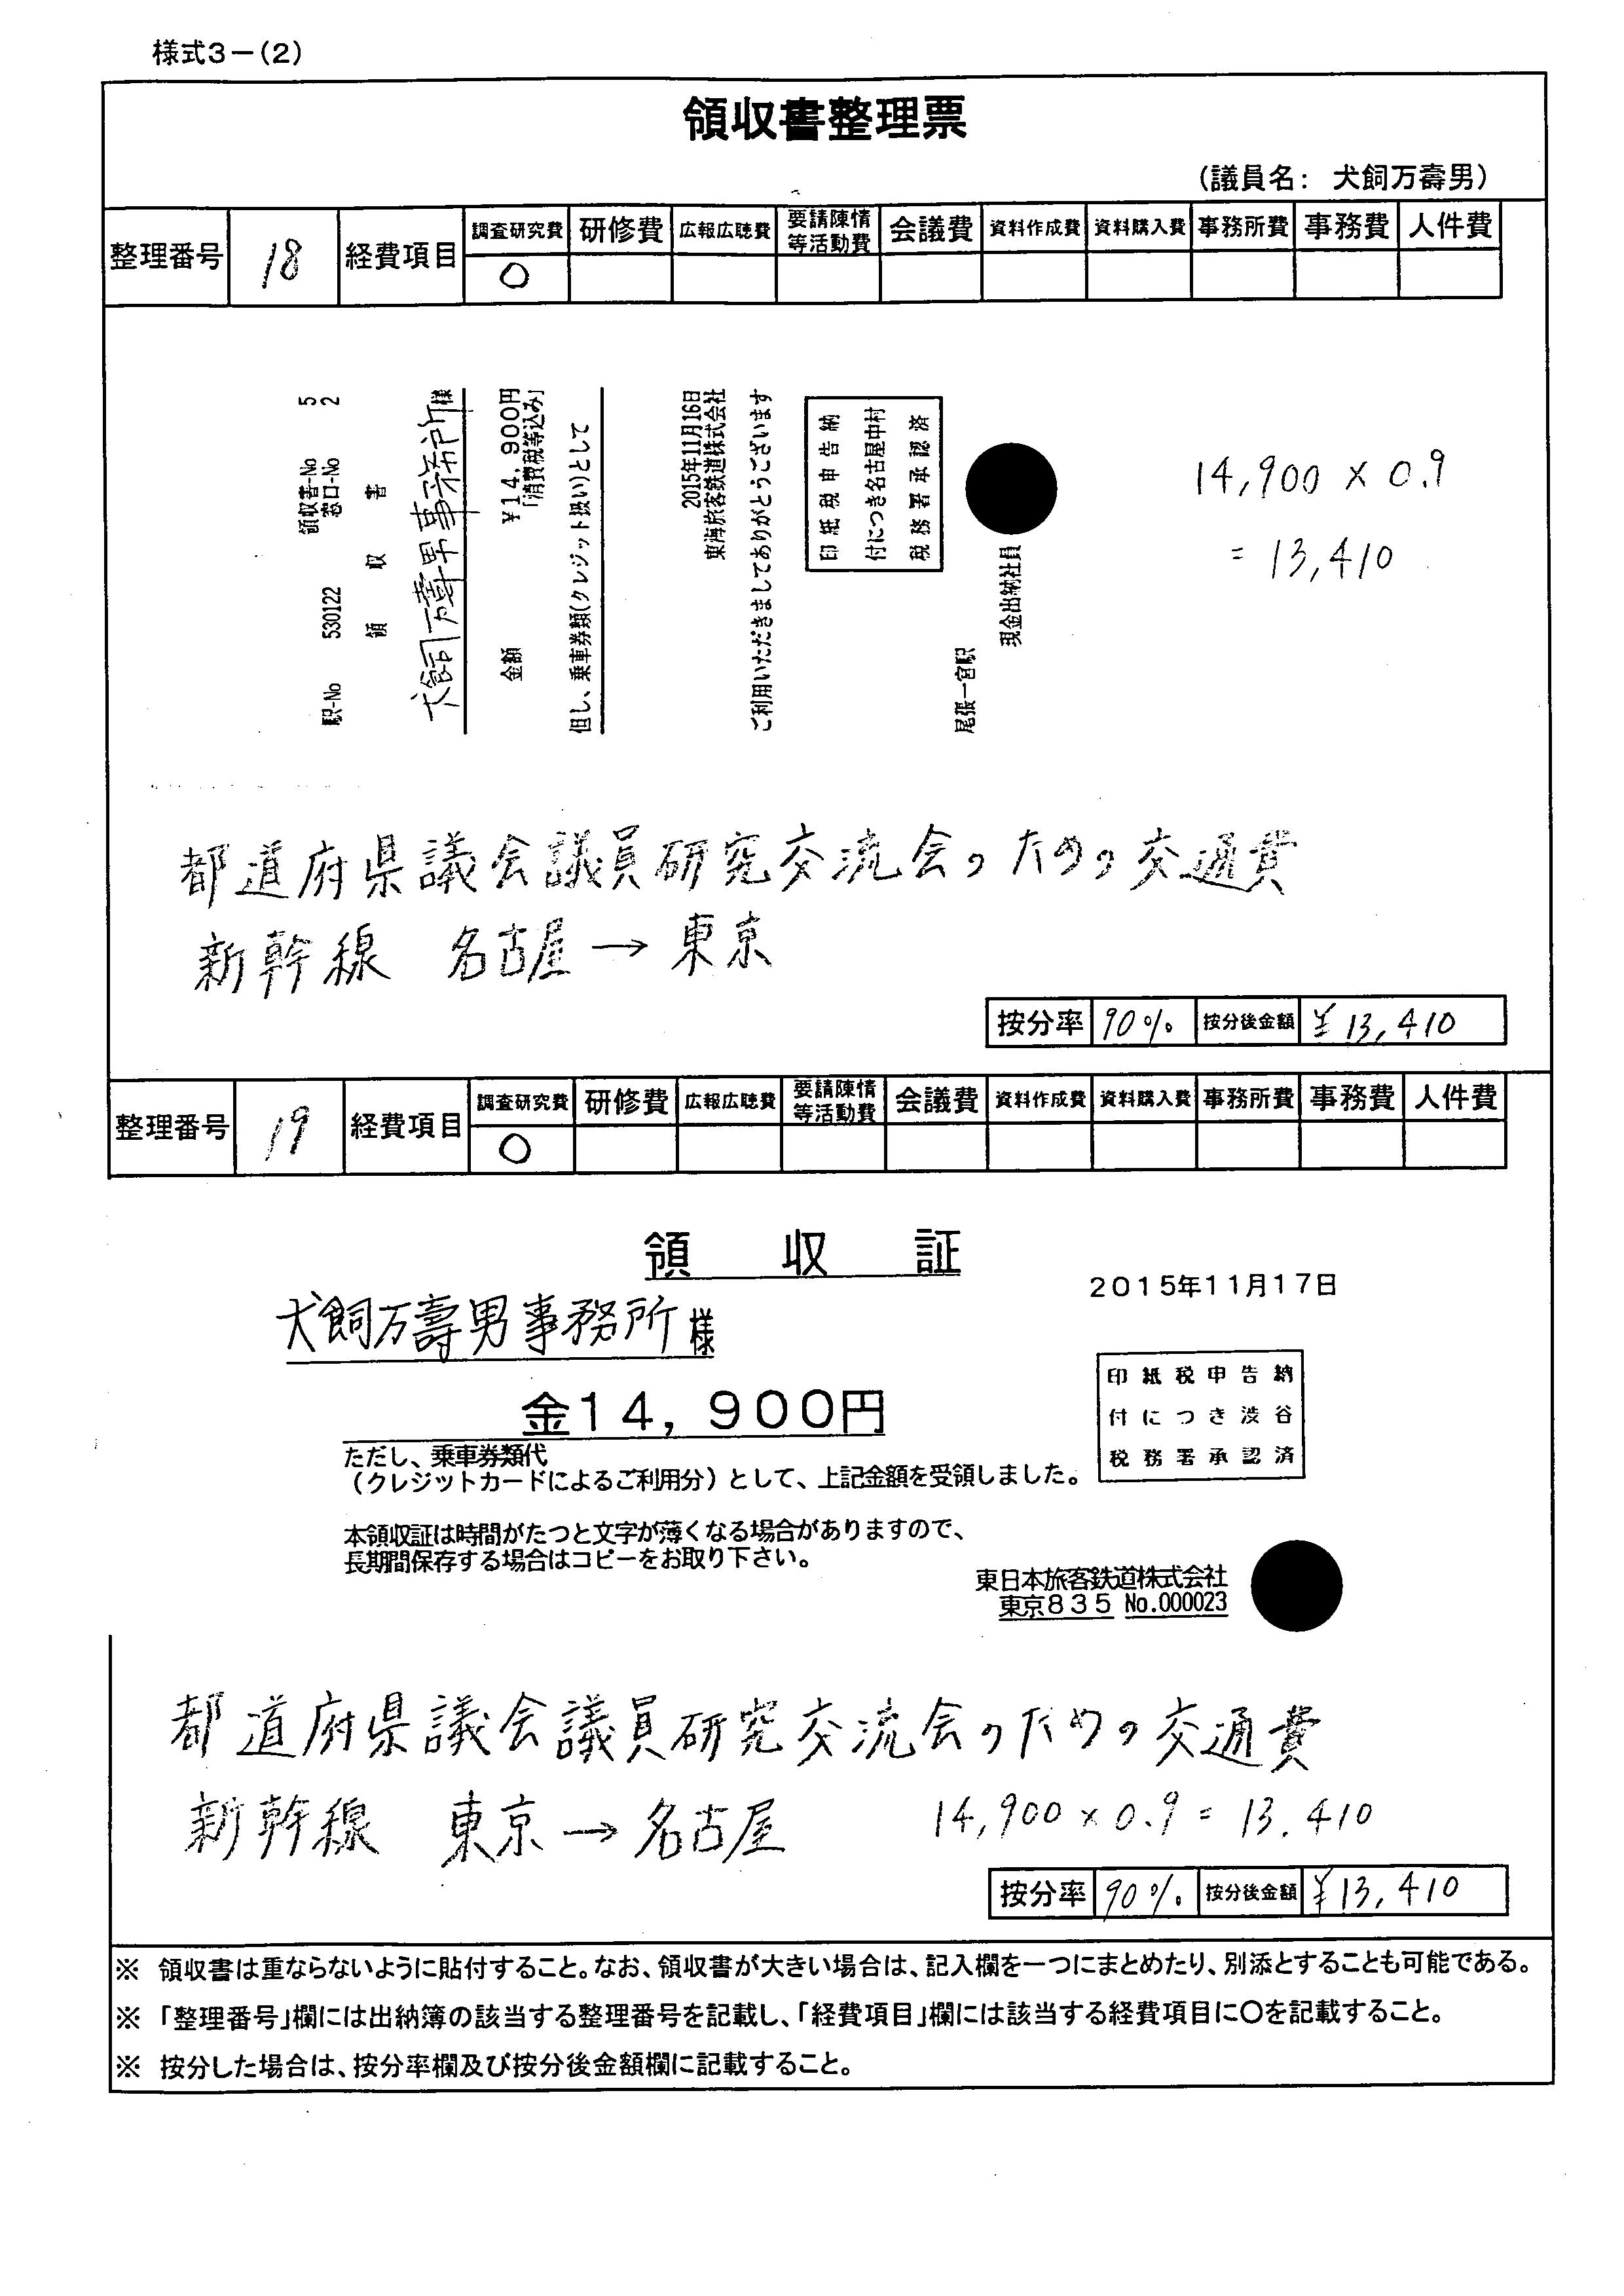 様式3－(2)
領収書整理票
(議員名： 犬飼万壽男)
整理番号 18 経費項目 調査研究費 研修費 広報広聴費 要請陳情等活動費 会議費 資料作成費 資料購入費 事務所費 事務費 人件費
○
領収書-No 5
駅-No 530122 窓口-No 2
領 収 書
犬飼万壽男事務所様
金額 ¥14,900円
「消費税等込み」
但し、乗車券類(クレジット扱い)として
2015年11月16日
東海旅客鉄道株式会社
ご利用いただきましてありがとうございます
印紙税申告納
付につき名古屋中村
税務署承認済
尾張一宮駅
現金出納社員
14,900 × 0.9
= 13,410
都道府県議会議員研究交流会のための交通費
新幹線 名古屋→東京
按分率 90% 按分後金額 ¥13,410
整理番号 19 経費項目 調査研究費 研修費 広報広聴費 要請陳情等活動費 会議費 資料作成費 資料購入費 事務所費 事務費 人件費
○
領 収 証
2015年11月17日
犬飼万壽男事務所様
金14,900円
印紙税申告納
付につき渋谷
税務署承認済
ただし、乗車券類代
（クレジットカードによるご利用分）として、上記金額を受領しました。
本領収証は時間がたつと文字が薄くなる場合がありますので、
長期間保存する場合はコピーをお取り下さい。
東日本旅客鉄道株式会社
東京835 No.000023
都道府県議会議員研究交流会のための交通費
新幹線 東京→名古屋 14,900×0.9=13.410
按分率 90% 按分後金額 ¥13,410
※ 領収書は重ならないように貼付すること。なお、領収書が大きい場合は、記入欄を一つにまとめたり、別添とすることも可能である。
※ 「整理番号」欄には出納簿の該当する整理番号を記載し、「経費項目」欄には該当する経費項目に○を記載すること。
※ 按分した場合は、按分率欄及び按分後金額欄に記載すること。